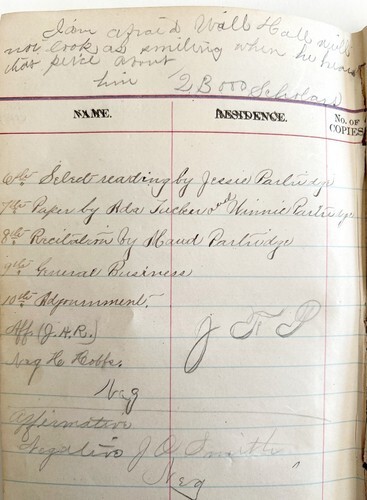 I am afraid Will Hall will
not look as smiling when he hears
that piece about
him 2 B 000 Scholars
NAME. RESIDENCE. No. OF COPIES
6th Select reading by Jessie Partridge
7th Paper by Ada Tucker and Winnie Partridge
8th Recitation by Maud Partridge
9th General Business
10th Adjournment.
Aff. (J.H.R.) J F P
Neg H. Hobbs.
Neg
Affirmative
Negative J Smith
Neg